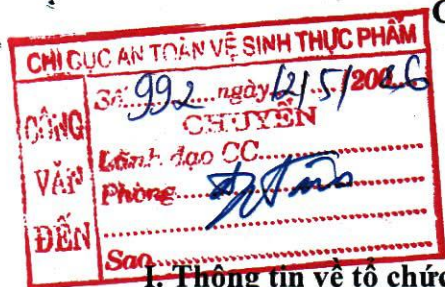 CHI CỤC AN TOÀN VỆ SINH THỰC PHẨM
CÔNG VĂN ĐẾN
Số 992 ngày 12/5/2026
CHUYỂN
Lãnh đạo CC
Phòng
Sao
I. Thông tin về tổ chức